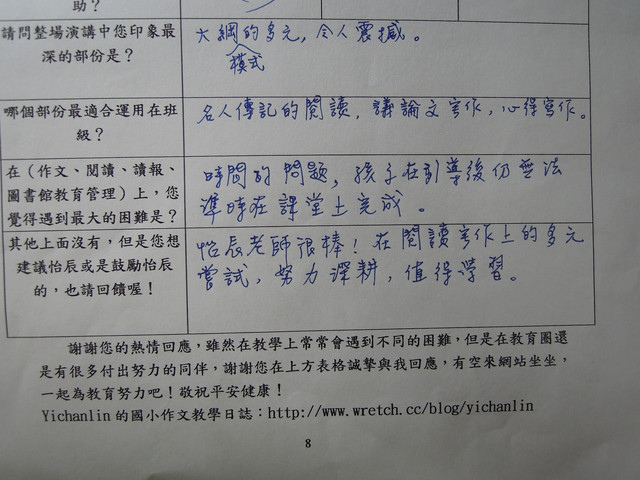 助？
請問整場演講中您印象最
深的部份是？
大綱的多元，令人震撼。
模式
哪個部份最適合運用在班
級？
名人傳記的閱讀，議論文寫作，心得寫作。
在（作文、閱讀、讀報、
圖書館教育管理）上，您
覺得遇到最大的困難是？
時間的問題，孩子在引導後仍無法
準時在課堂上完成。
其他上面沒有，但是您想
建議怡辰或是鼓勵怡辰
的，也請回饋喔！
怡辰老師很棒！在閱讀寫作上的多元
嘗試，努力深耕，值得學習。
謝謝您的熱情回應，雖然在教學上常常會遇到不同的困難，但是在教育圈還
是有很多付出努力的同伴，謝謝您在上方表格誠摯與我回應，有空來網站坐坐，
一起為教育努力吧！敬祝平安健康！
Yichanlin 的國小作文教學日誌：http://www.wretch.cc/blog/yichanlin
8